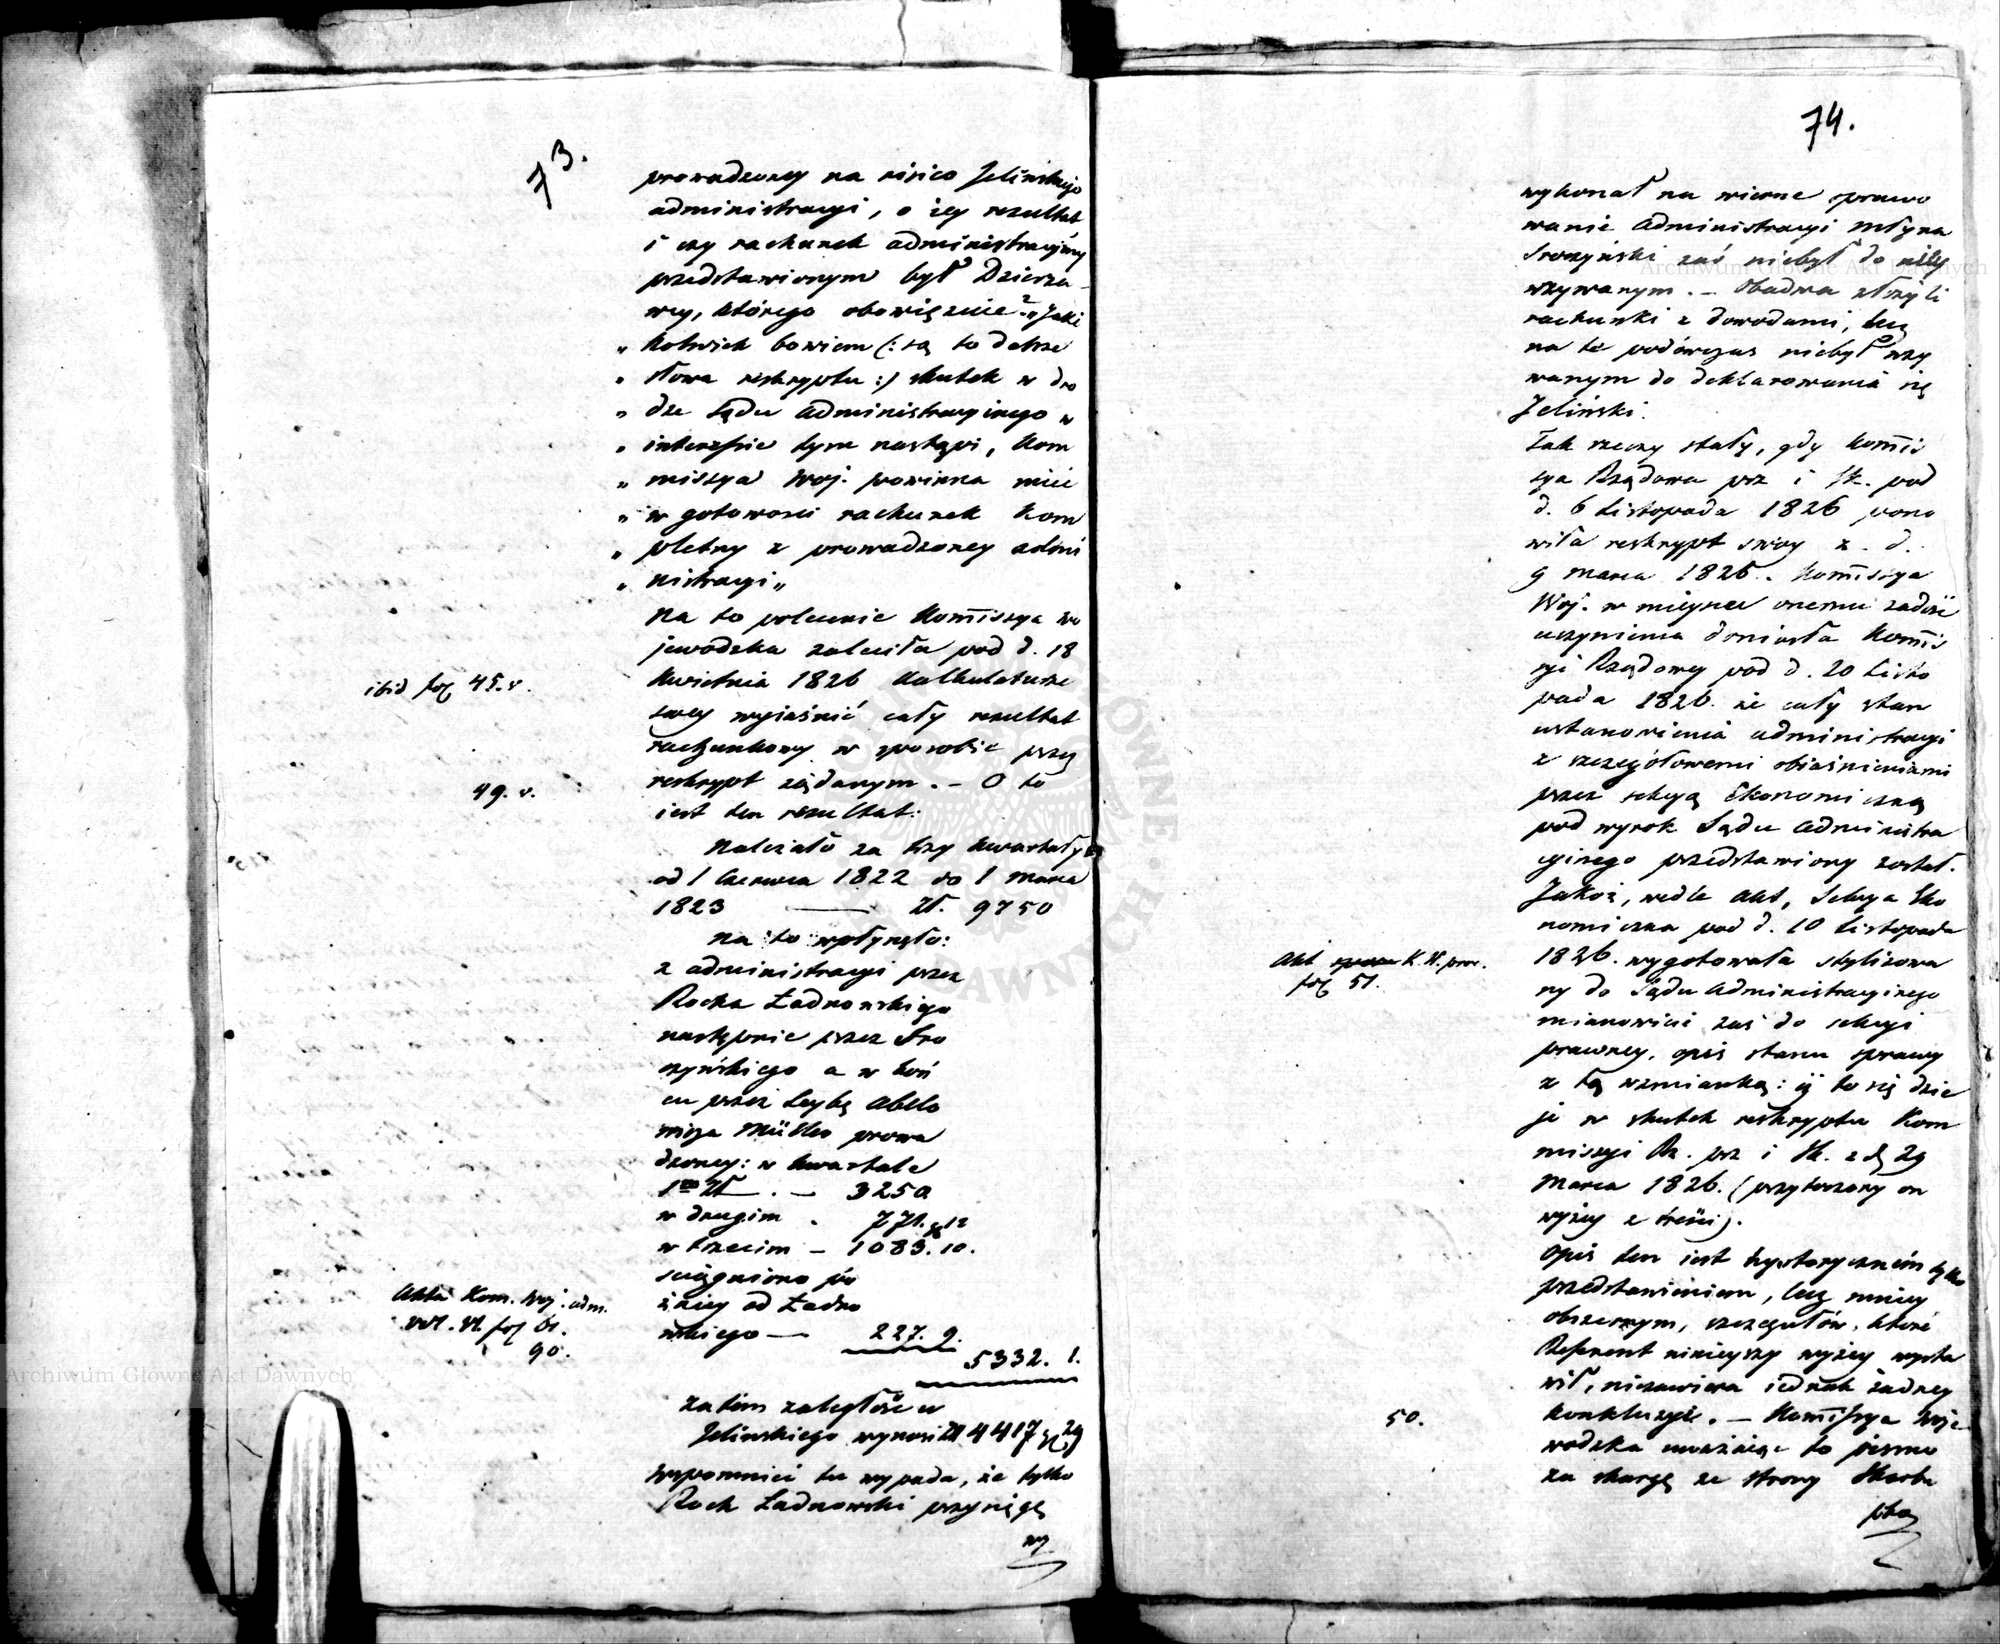 73.
prowadzoney na risico Jelińskiego
administracyi, o iey rezultat
i czy rachunek administracyjny
przedstawionym był Dzierża-
wcy, którego obowiązuie? „Jaki
„ kolwiek bowiem (: są to dalsze
„ słowa reskryptu :) skutek w dro
„ dze Sądu Administracyinego w
„ interessie tym nastąpi, Kom
„ missya Woj. powinna mieć
„ w gotowości rachunek kom
„ pletny z prowadzoney admi
„ nistracyi„
Na to polecenie Kommissya wo
jewodzka zaleciła pod d. 18
ibid fol 45.v.
Kwietnia 1826 Kalkulaturze
swey wyiaśnić cały rezultat
rachunkowy w sposobie przez
49. v.
reskrypt żądanym. – O to
iest ten rezultat:
Należało za trzy kwartały
od 1 Czerwca 1822 do 1 Marca
1823 — Zł. 9750
Na to wpłynęło:
z administracyi przez
Rocha Ładnowskiego
następnie przez Sro
czyńskiego a w koń
cu przez Leybę Abelo
wicza Müller prowa
dzoney: w kwartale
1m Zł — . – 3250
w drugim . 771. gr 12
w trzecim – 1083. 10.
sciągniono pó
źniey od Ładno
Akta Kom. Woj. adm.
vol. VI. fol 61.
90.
wskiego — 227. 9.
5332. 1.
zatem zaległość u
Jelińskiego wynosi zł 4417 gr 29
Wspomnieć tu wypada, że tylko
Roch Ładnowski przysięgę
wy
74.
wykonał na wierne sprawo
wanie Administracyi młyna
Sroczyński zaś niebył do niey
wzywanym. – Obadwa złożyli
rachunki z dowodami, lecz
na te podówczas niebył wzy
wanym do deklarowania się
Jeliński.
Tak rzeczy stały, gdy Kommis
sya Rządowa prz i Sk. pod
d. 6 Listopada 1826 pono
wiła reskrypt swóy z d.
9 Marca 1826. Kommissya
Woj. w mieysce onemu zadość
uczynienia doniosła Kommis
syi Rządowey pod d. 20 Listo
pada 1826. że cały stan
ustanowienia administracyi
z szczegółowemi obiaśnieniami
przez sekcyą Ekonomiczną
pod wyrok Sądu Administra
cyinego przedstawiony został.
Jakoż, wedle Akt, Sekcya Eko
nomiczna pod d. 10 Listopada
Akt K. W. praw.
fol 51.
1826. wygotowała stylizowa
ny do Sądu Administracyinego
mianowicie zaś do sekcyi
prawney, opis stanu sprawy
z tą wzmianką: iż to się dzie
je w skutek reskryptu Kom
missyi Rz. prz i Sk. z d. 29
Marca 1826. (przytoczony on
wyżey z treści).
Opis ten iest historycznem tylko
przedstawieniem, lecz mniey
obszernym, szczegółów, które
Referent ninieyszy wyżey wysta
wił, niezawiera iednak żadney
50.
konkluzyi. – Kommissya Woje
wodzka uważaiąc to pismo
za skargę ze strony Skarbu